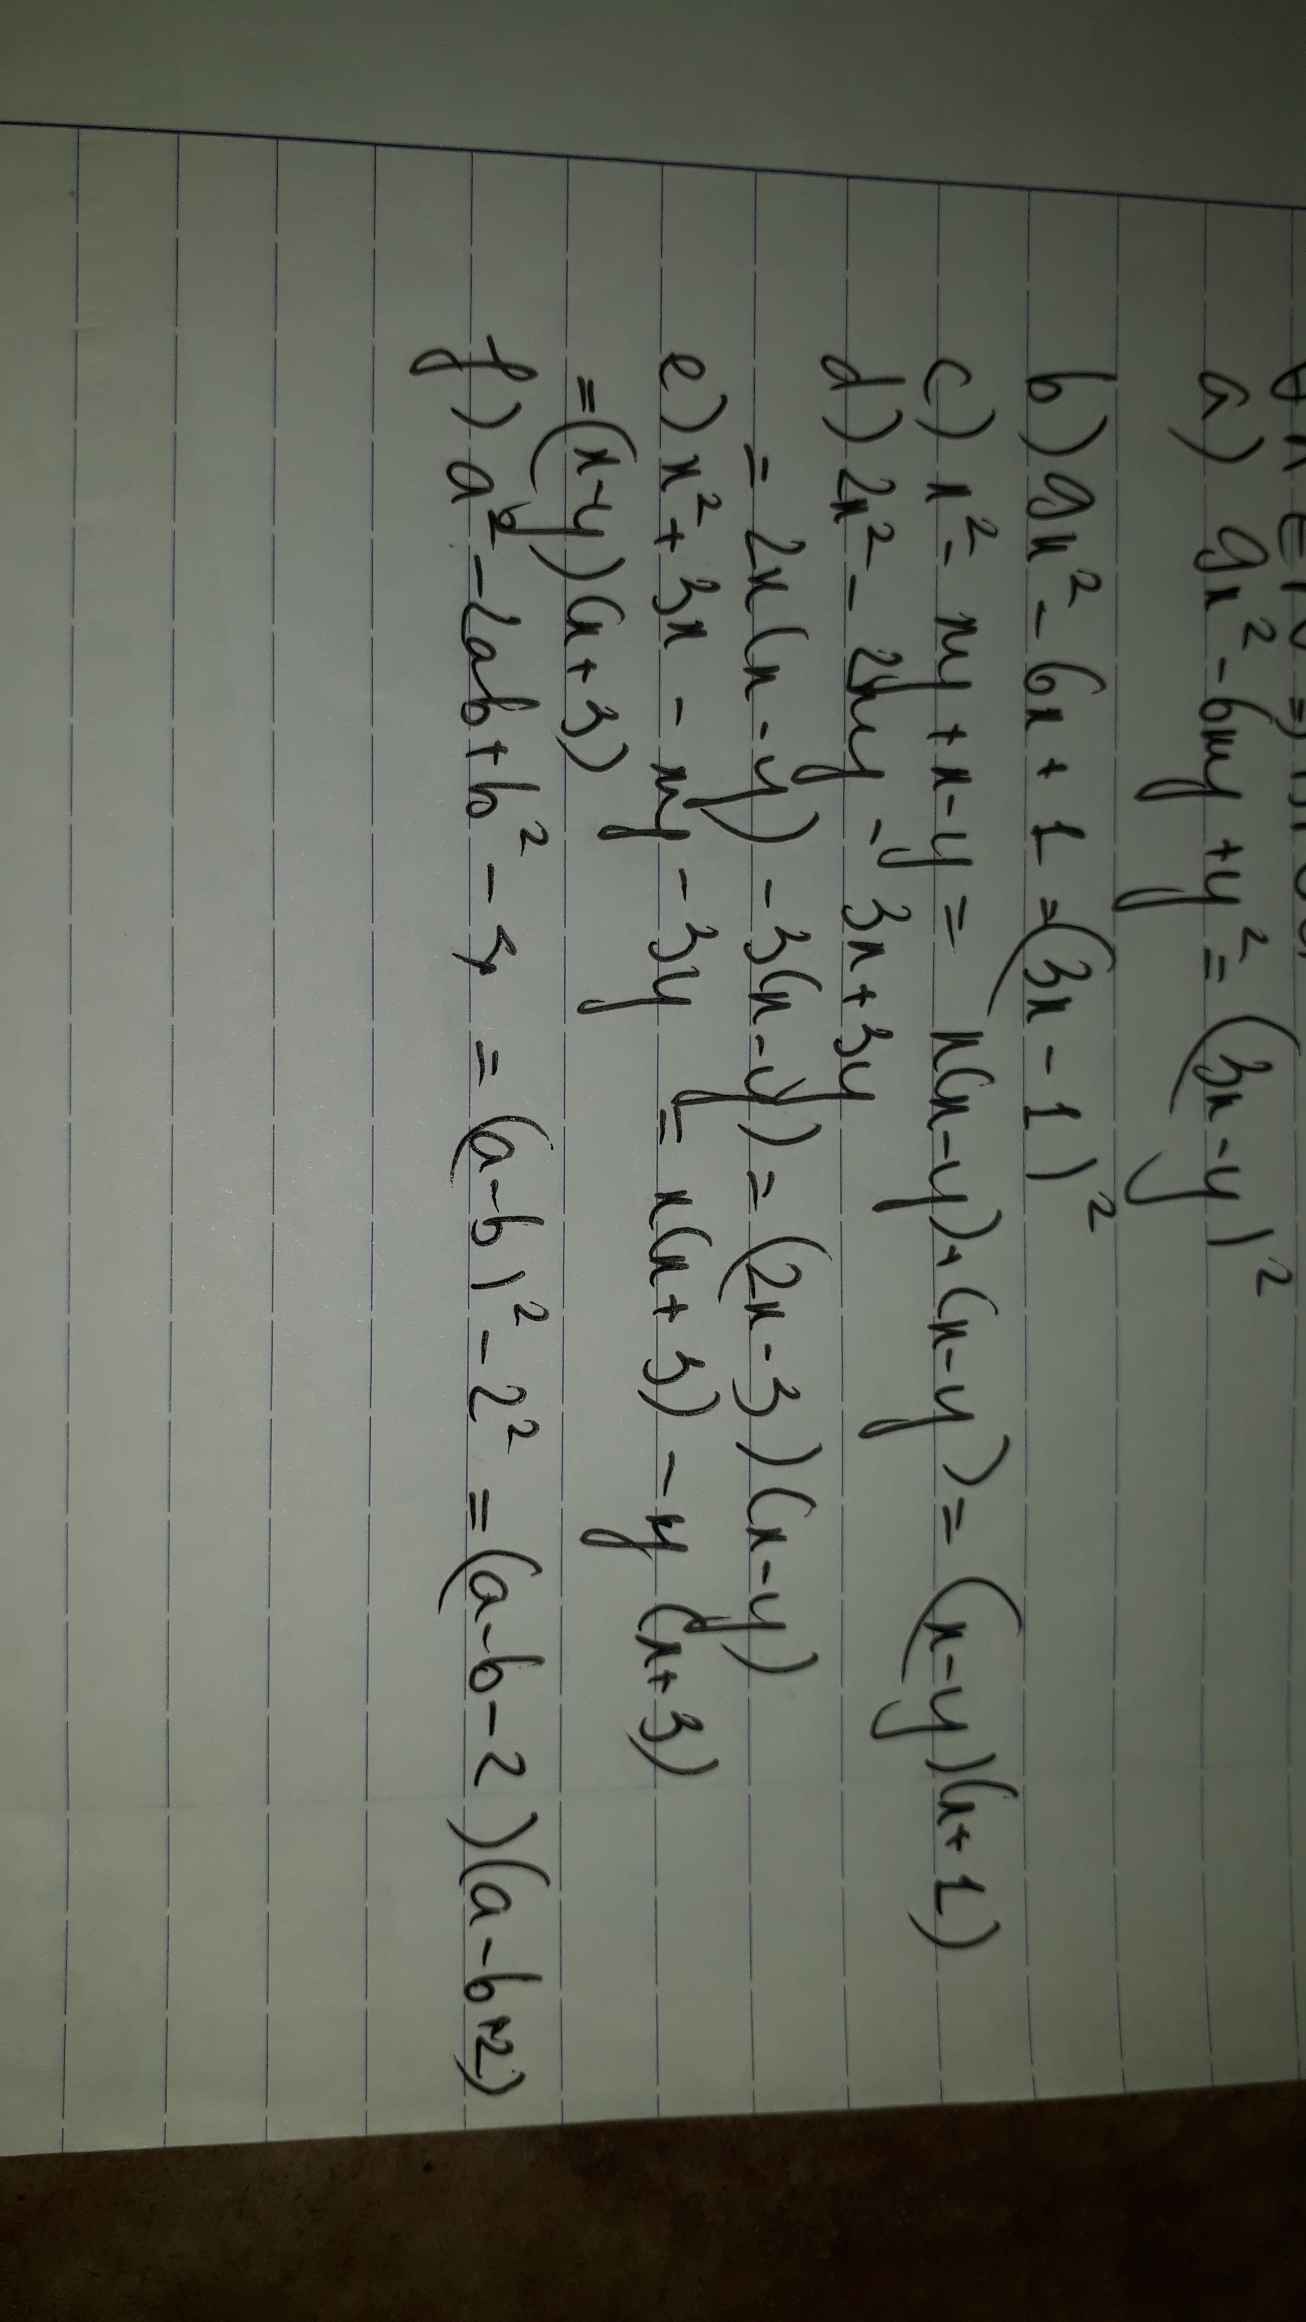 a) 9x² - 6xy + y² = (3x - y)²
b) 9x² - 6x + 1 = (3x - 1)²
c) x² - xy + x - y = x(x - y) + (x - y) = (x - y)(x + 1)
d) 2x² - 2xy - 3x + 3y
= 2x(x - y) - 3(x - y) = (2x - 3)(x - y)
e) x² + 3x - xy - 3y = x(x + 3) - y(x + 3)
= (x - y)(x + 3)
f) a² - 2ab + b² - 4 = (a - b)² - 2² = (a - b - 2)(a - b + 2)